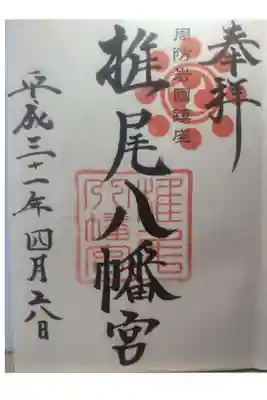 奉拝
周防岩國鎮座
椎尾八幡宮
平成三十一年四月六日
椎尾
八幡宮